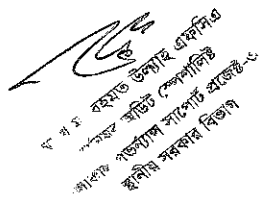 রহমত উল্যাহ এফসিএ
অডিট স্পেশালিষ্ট
গভর্ণ্যান্স সাপোর্ট প্রজেক্ট-৩
স্থানীয় সরকার বিভাগ